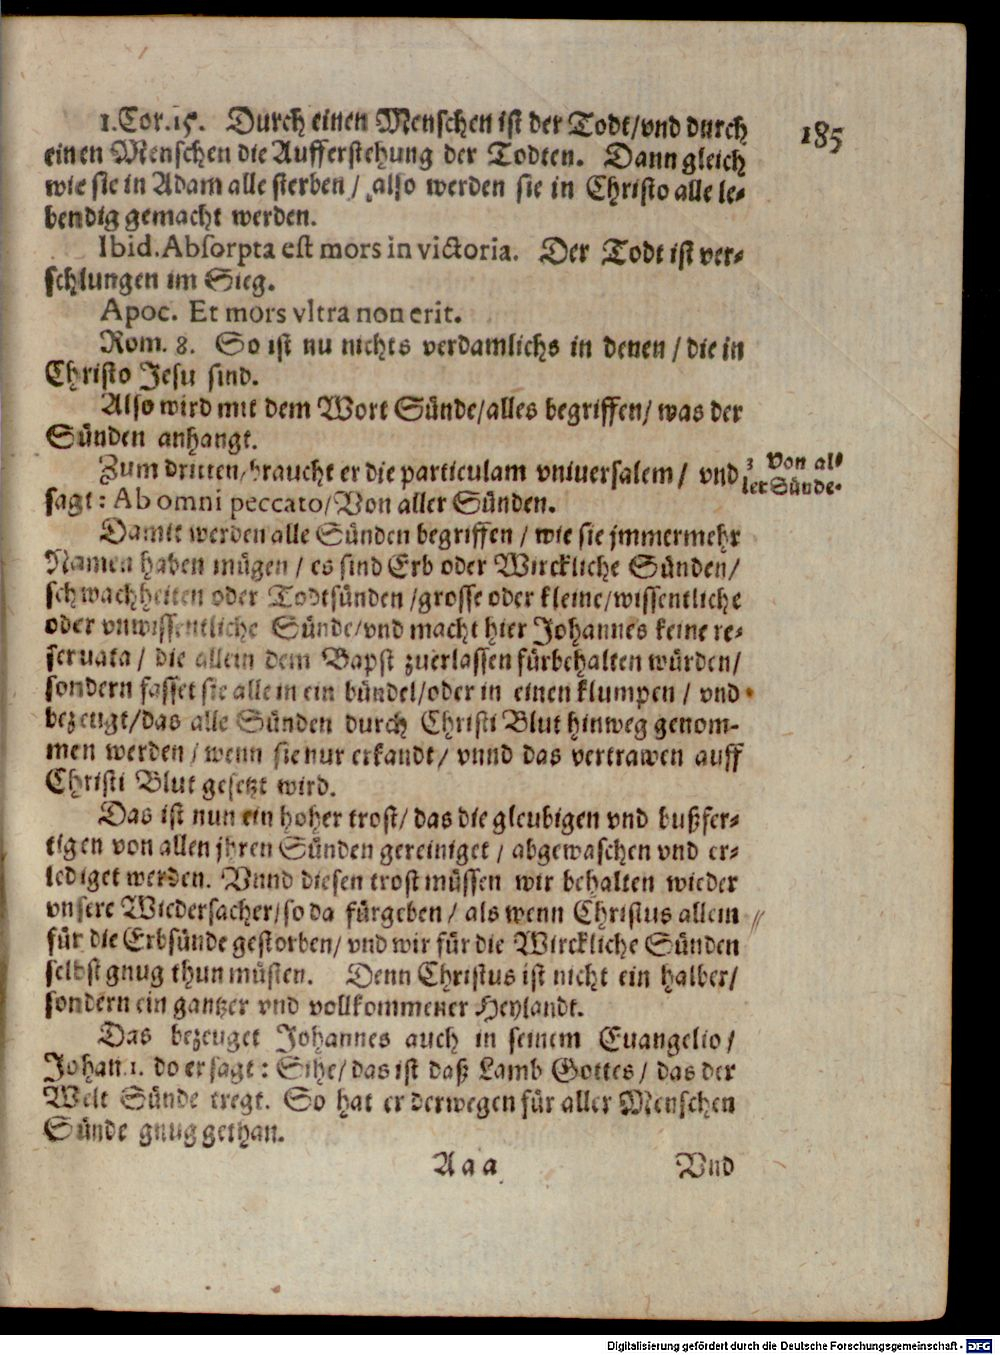 185
1.Cor.15. Durch einen Menschen ist der Todt/vnd durch
einen Menschen die Aufferstehung der Todten. Dann gleich
wie sie in Adam alle sterben / also werden sie in Christo alle le-
bendig gemacht werden.
Ibid. Absorpta est mors in victoria. Der Todt ist ver-
schlungen im Sieg.
Apoc. Et mors vltra non erit.
Rom. 8. So ist nu nichts verdamlichs in denen / die in
Christo Jesu sind.
Also wird mit dem Wort Sünde/alles begriffen/ was der
Sünden anhangt.
Zum dritten/braucht er die particulam vniuersalem / vnd
sagt: Ab omni peccato/Von aller Sünden.
3 Von al-
ler Sünde.
Damit werden alle Sünden begriffen / wie sie jmmermehr
Namen haben mügen / es sind Erb oder Wirckliche Sünden/
schwachheiten oder Todtsünden /grosse oder kleine/wissentliche
oder vnwissentliche Sünde/vnd macht hier Johannes keine re-
seruata / die allein dem Bapst zuerlassen fürbehalten würden/
sondern fasset sie alle in ein bündel/oder in einen klumpen / vnd
bezeugt/das alle Sünden durch Christi Blut hinweg genom-
men werden / wenn sie nur erkandt/ vnnd das vertrawen auff
Christi Blut gesetzt wird.
Das ist nun ein hoher trost/ das die gleubigen vnd bußfer-
tigen von allen jhren Sünden gereiniget / abgewaschen vnd er-
lediget werden. Vnnd diesen trost müssen wir behalten wieder
vnsere Wiedersacher/so da fürgeben / als wenn Christus allein
für die Erbsünde gestorben/ vnd wir für die Wirckliche Sünden
selbst gnug thun müsten. Denn Christus ist nicht ein halber/
sondern ein gantzer vnd vollkommener Heylandt.
Das bezeuget Johannes auch in seinem Euangelio /
Johan 1. do er sagt: Sihe/ das ist daß Lamb Gottes / das der
Welt Sünde tregt. So hat er derwegen für aller Menschen
Sünde gnug gethan.
Aaa Vnd
Digitalisierung gefördert durch die Deutsche Forschungsgemeinschaft - DFG